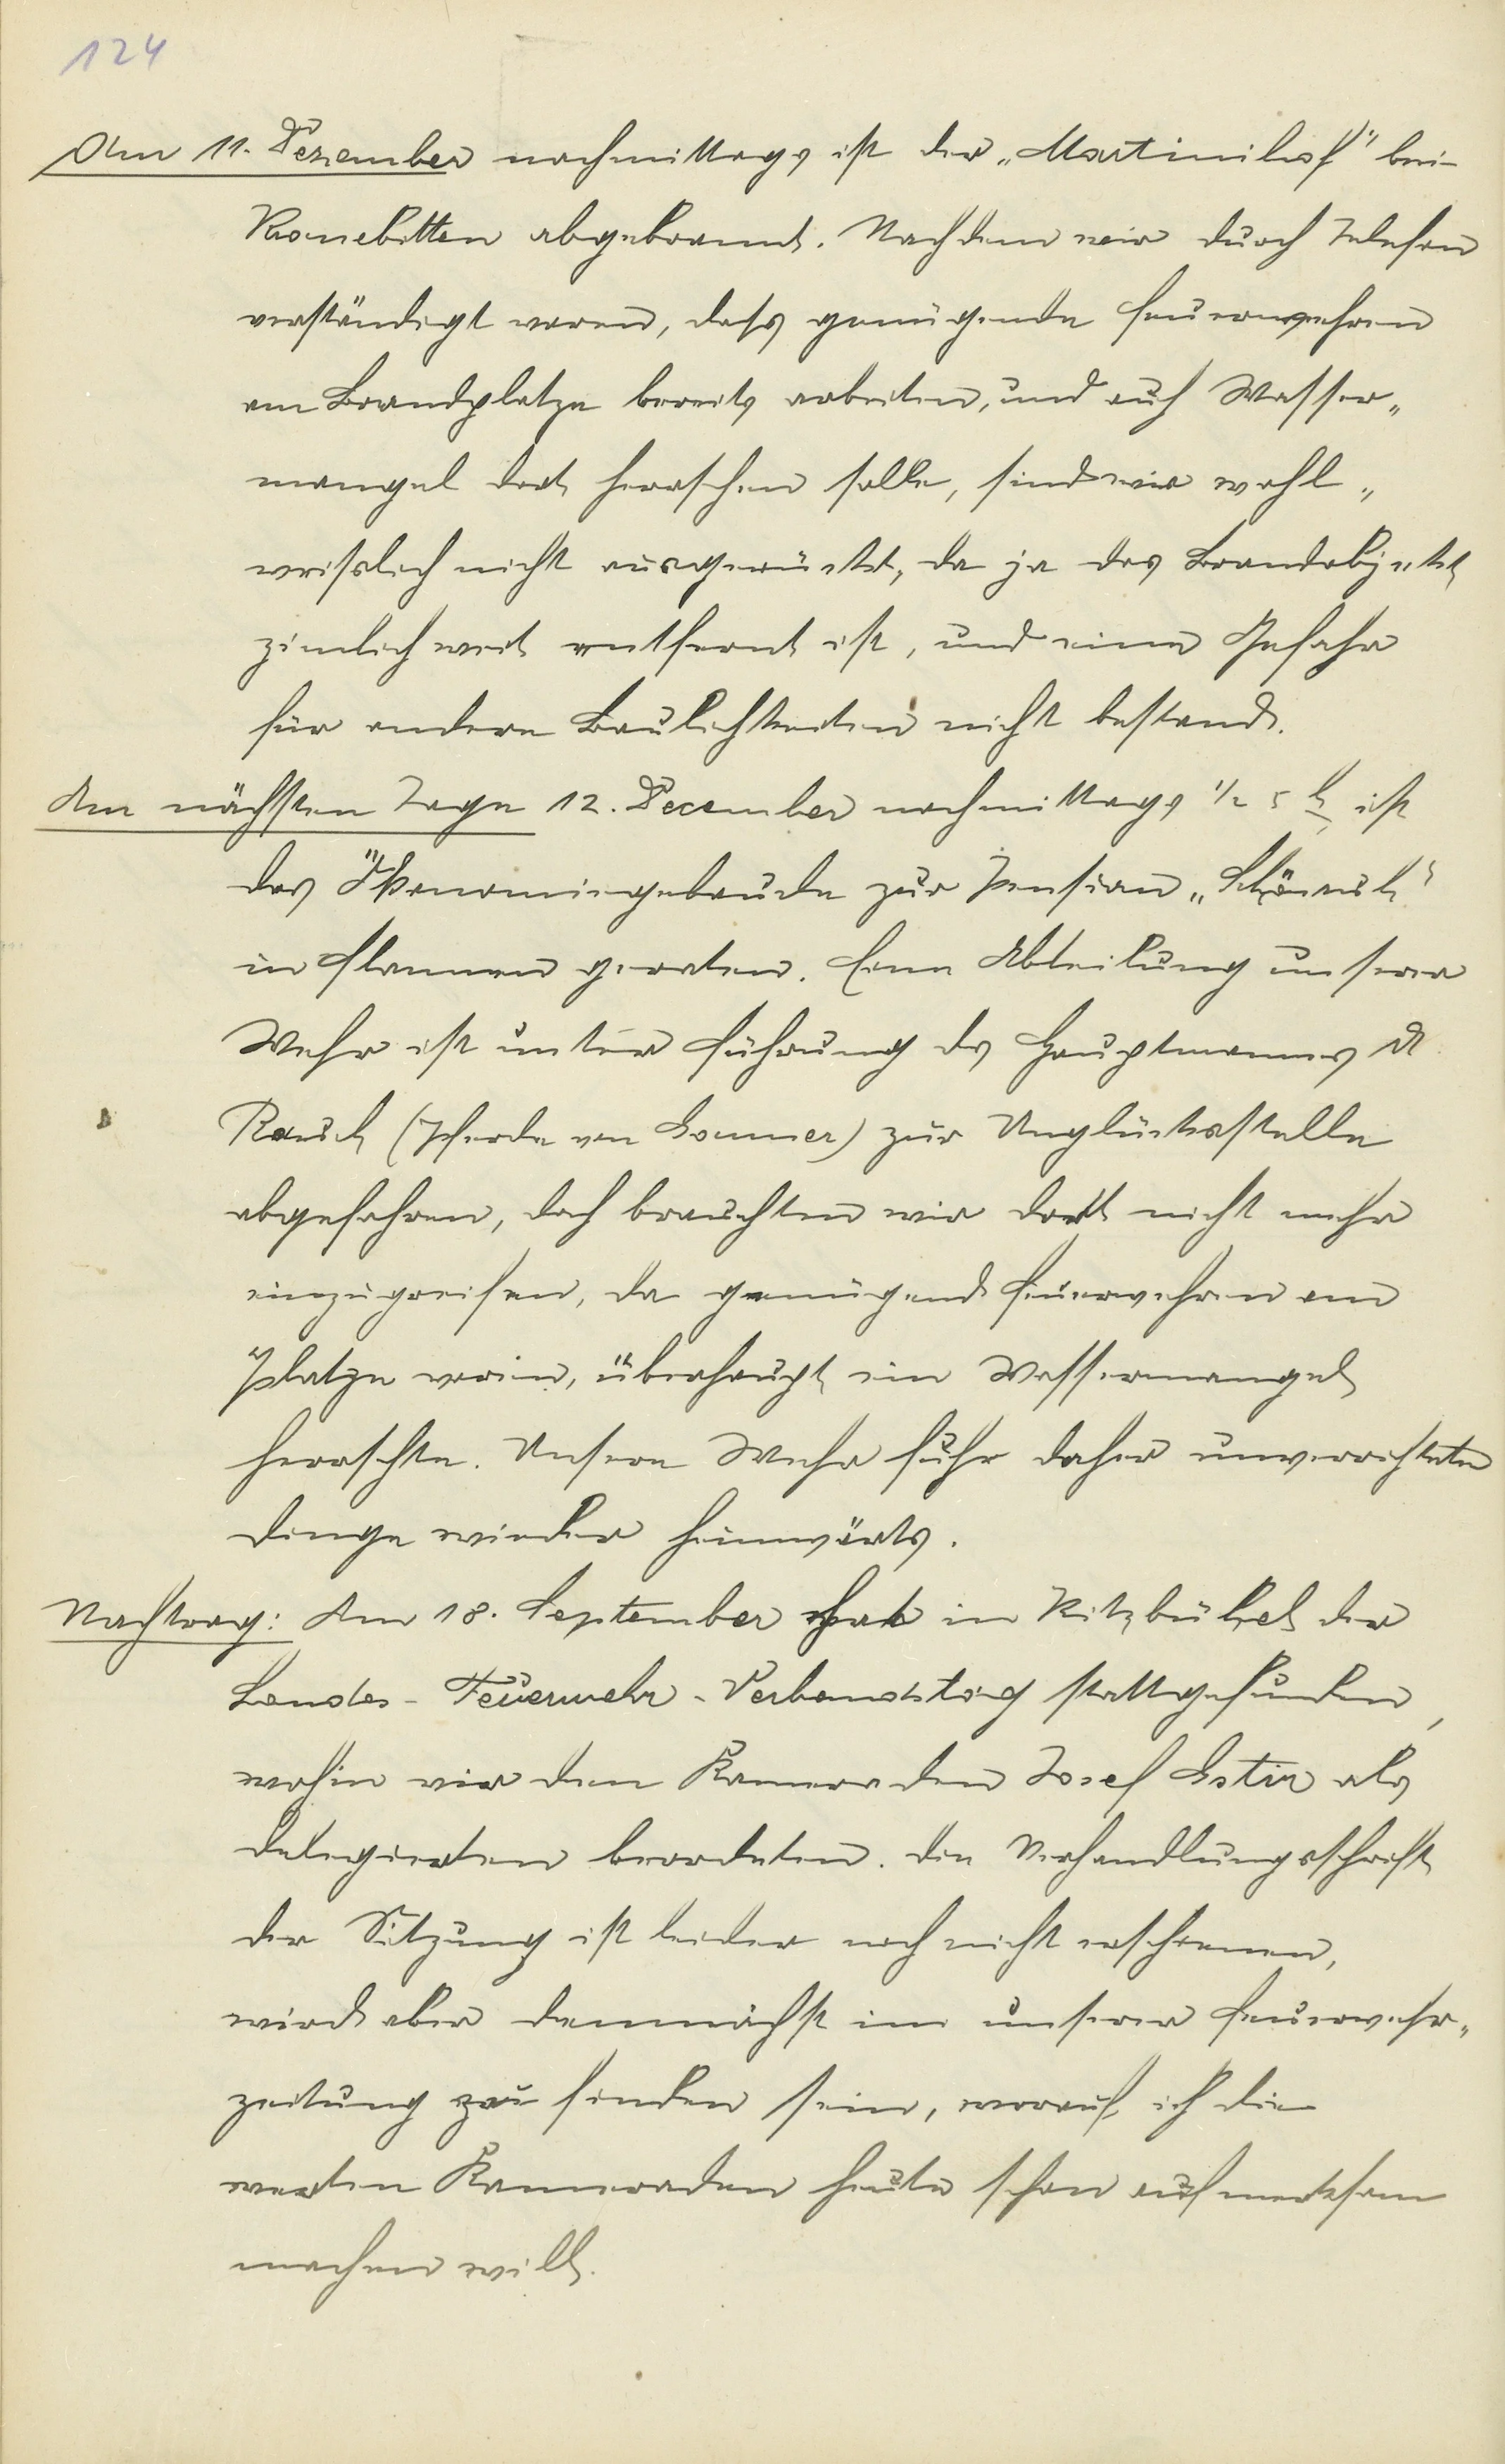 124
Am 11. Dezember nachmittags ist der „Martinihof" bei
Kranebitten abgebrannt. Nachdem wir durch Telefon
verständigt waren, dass genügende Feuerwehren
am Brandplatze bereits arbeiten, und auch Wasser„
mangel dort herrschen solle, sind wir wohl„
weisslich nicht ausgerückt, da ja das Brandobjekt
zimlich weit entfernt ist, und eine Gefahr
für andere Baulichkeiten nicht bestand.
Am nächsten Tage 12. December nachmittags ½ 5 h ist
das Ökonomiegebäude zur Pension „Schönruh"
in Flammen geraten. Eine Abteilung unserer
Wehr ist unter Führung des Hauptmannes A.
Rauch (Pferde von Sommer) zur Unglücksstelle
abgefahren, doch brauchten wir dort nicht mehr
einzugreifen, da genügend Feuerwehren am
Platze waren, überhaupt ein Wassermangel
herrschte. Unsere Wehr fuhr daher unverrichteter
Dinge wieder heimwärts.
Nachtrag: Am 18. September hat in Kitzbühel der
Landes-Feuerwehr-Verbandstag stattgefunden,
wohin wir den Kameraden Josef als
Delegierten beordeten. Die Verhandlungsschrift
der Sitzung ist leider noch nicht erschienen,
wird aber demnächst in unserer Feuerwehr„
zeitung zu finden sein, worauf ich die
werten Kameraden heute schon aufmerksam
machen will.